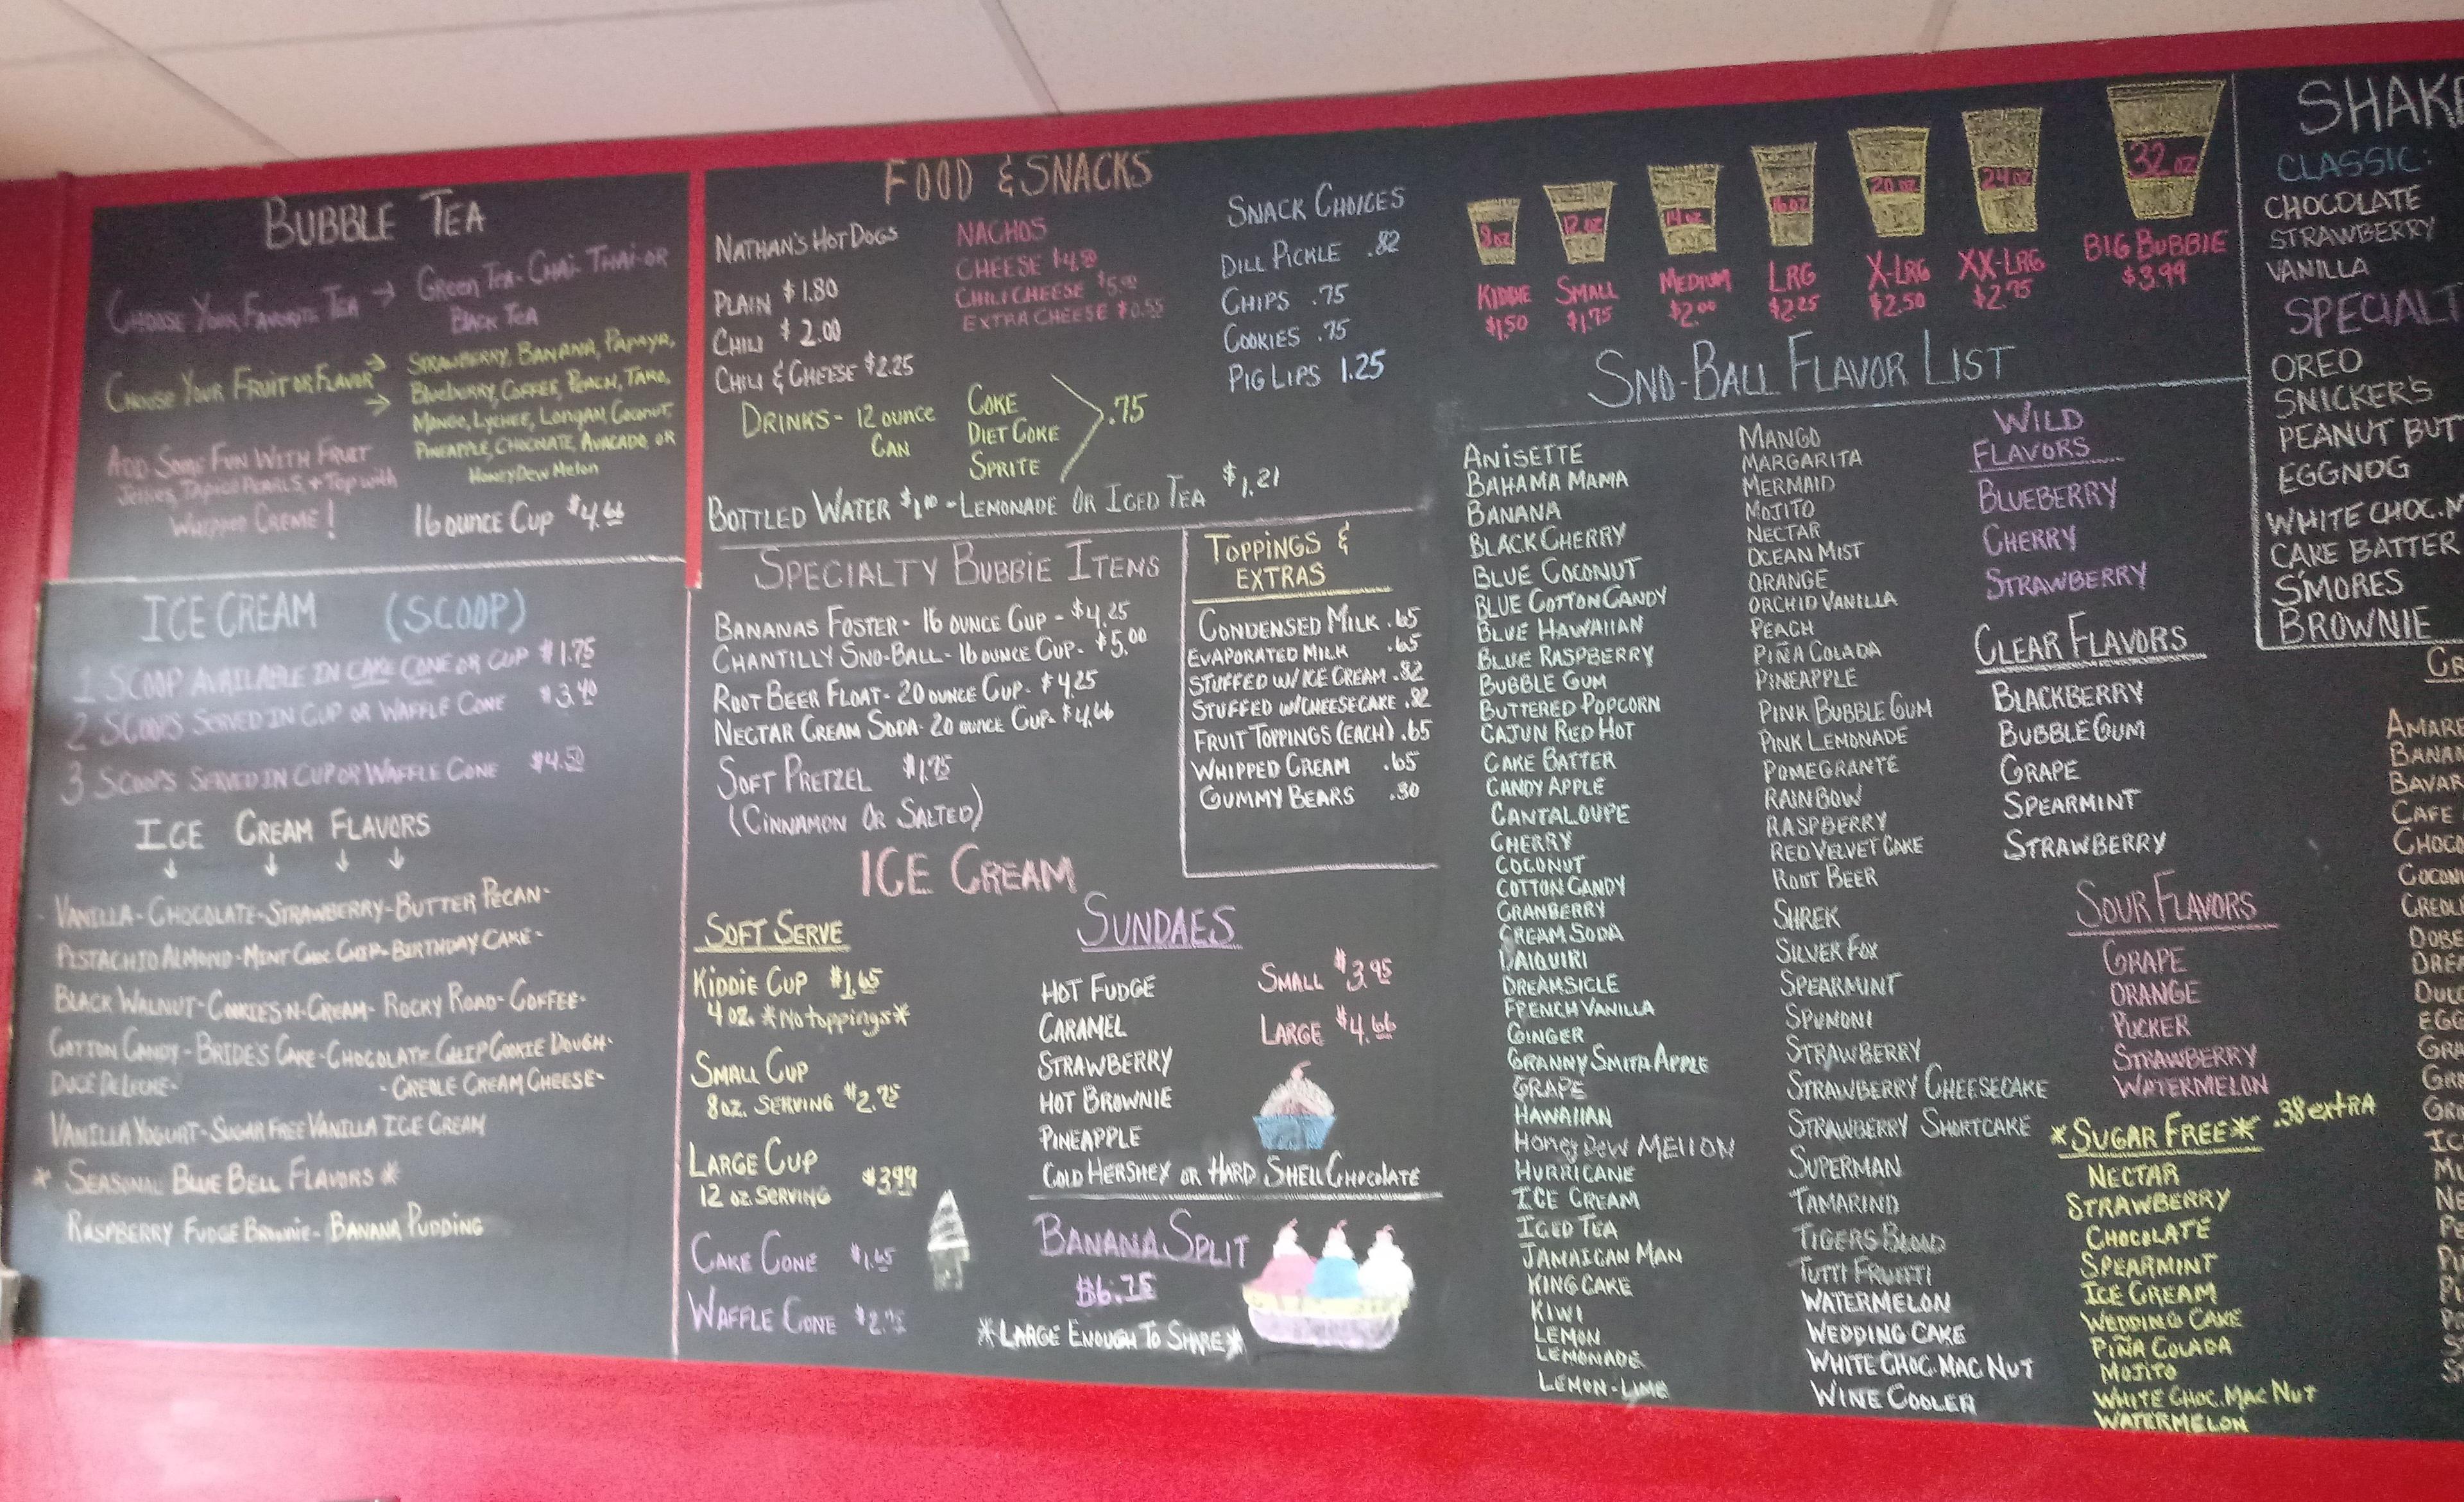 BUBBLE TEA
CHOOSE YOUR FAVORITE TEA → GREEN TEA - CHAI - THAI - OR
BLACK TEA
CHOOSE YOUR FRUIT OR FLAVOR → STRAWBERRY, BANANA, PAPAYA,
→ BLUEBERRY, COFFEE, PEACH, TARO,
MANGO, LYCHEE, LONGAN, COCONUT,
PINEAPPLE, CHOCOLATE, AVACADO, OR
HONEYDEW MELON
ADD SOME FUN WITH FRUIT
JELLIES, TAPIOCA PEARLS, + TOP WITH
WHIPPED CREME!
16 OUNCE CUP $4.66
ICE CREAM (SCOOP)
1 SCOOP AVAILABLE IN CAKE CONE OR CUP $1.75
2 SCOOPS SERVED IN CUP OR WAFFLE CONE $3.40
3 SCOOPS SERVED IN CUP OR WAFFLE CONE $4.50
ICE CREAM FLAVORS
↓ ↓ ↓ ↓
- VANILLA - CHOCOLATE - STRAWBERRY - BUTTER PECAN -
PISTACHIO ALMOND - MINT CHOC CHIP - BIRTHDAY CAKE -
BLACK WALNUT - COOKIES-N-CREAM - ROCKY ROAD - COFFEE -
COTTON CANDY - BRIDE'S CAKE - CHOCOLATE CHIP COOKIE DOUGH -
DUCE DE LECHE - - CREOLE CREAM CHEESE -
VANILLA YOGURT - SUGAR FREE VANILLA ICE CREAM
* SEASONAL BLUE BELL FLAVORS *
RASPBERRY FUDGE BROWNIE - BANANA PUDDING
FOOD & SNACKS
NATHAN'S HOT DOGS
PLAIN $1.80
CHILI $2.00
CHILI & CHEESE $2.25
NACHOS
CHEESE
CHILI CHEESE
EXTRA CHEESE $0.55
SNACK CHOICES
DILL PICKLE .82
CHIPS .75
COOKIES .75
PIG LIPS 1.25
DRINKS - 12 OUNCE
CAN
COKE
DIET COKE
SPRITE
.75
BOTTLED WATER $1.10 - LEMONADE OR ICED TEA $1.21
SPECIALTY BUBBIE ITEMS
BANANAS FOSTER - 16 OUNCE CUP - $4.25
CHANTILLY SNO-BALL - 16 OUNCE CUP - $5.00
ROOT BEER FLOAT - 20 OUNCE CUP - $4.25
NECTAR CREAM SODA - 20 OUNCE CUP - $4.66
SOFT PRETZEL $1.75
(CINNAMON OR SALTED)
TOPPINGS &
EXTRAS
CONDENSED MILK .65
EVAPORATED MILK .65
STUFFED W/ICE CREAM .82
STUFFED W/CHEESECAKE .82
FRUIT TOPPINGS (EACH) .65
WHIPPED CREAM .65
GUMMY BEARS .80
ICE CREAM
SOFT SERVE
KIDDIE CUP $1.65
4 OZ. *No toppings*
SMALL CUP
8 OZ. SERVING $2.75
LARGE CUP
12 OZ. SERVING $3.99
CAKE CONE $1.65
WAFFLE CONE $2.75
SUNDAES
HOT FUDGE
CARAMEL
STRAWBERRY
HOT BROWNIE
PINEAPPLE
COLD HERSHEY OR HARD SHELL CHOCOLATE
SMALL $3.95
LARGE $4.66
BANANA SPLIT
$6.75
*LARGE ENOUGH TO SHARE*
8 OZ 12 OZ 14 OZ 16 OZ 20 OZ 24 OZ 32 OZ
KIDDIE SMALL MEDIUM LRG X-LRG XX-LRG BIG BUBBIE
$1.50 $1.75 $2.00 $2.25 $2.50 $2.75 $3.99
SNO-BALL FLAVOR LIST
ANISETTE
BAHAMA MAMA
BANANA
BLACK CHERRY
BLUE COCONUT
BLUE COTTON CANDY
BLUE HAWAIIAN
BLUE RASPBERRY
BUBBLE GUM
BUTTERED POPCORN
CAJUN RED HOT
CAKE BATTER
CANDY APPLE
CANTALOUPE
CHERRY
COCONUT
COTTON CANDY
CRANBERRY
CREAM SODA
DAIQUIRI
DREAMSICLE
FRENCH VANILLA
GINGER
GRANNY SMITH APPLE
GRAPE
HAWAIIAN
HONEY DEW MELLON
HURRICANE
ICE CREAM
ICED TEA
JAMAICAN MAN
KING CAKE
KIWI
LEMON
LEMONADE
LEMON-LIME
MANGO
MARGARITA
MERMAID
MOJITO
NECTAR
OCEAN MIST
ORANGE
ORCHID VANILLA
PEACH
PIÑA COLADA
PINEAPPLE
PINK BUBBLE GUM
PINK LEMONADE
POMEGRANTE
RAINBOW
RASPBERRY
RED VELVET CAKE
ROOT BEER
SHREK
SILVER FOX
SPEARMINT
SPUMONI
STRAWBERRY
STRAWBERRY CHEESECAKE
STRAWBERRY SHORTCAKE
SUPERMAN
TAMARIND
TIGERS BLOOD
TUTTI FRUITTI
WATERMELON
WEDDING CAKE
WHITE CHOC. MAC NUT
WINE COOLER
WILD
FLAVORS
BLUEBERRY
CHERRY
STRAWBERRY
CLEAR FLAVORS
BLACKBERRY
BUBBLE GUM
GRAPE
SPEARMINT
STRAWBERRY
SOUR FLAVORS
GRAPE
ORANGE
PUCKER
STRAWBERRY
WATERMELON
*SUGAR FREE* .38 extra
NECTAR
STRAWBERRY
CHOCOLATE
SPEARMINT
ICE CREAM
WEDDING CAKE
PIÑA COLADA
MOJITO
WHITE CHOC. MAC NUT
WATERMELON
SHAKE
CLASSIC:
CHOCOLATE
STRAWBERRY
VANILLA
SPECIALT
OREO
SNICKER'S
PEANUT BUT
EGGNOG
WHITE CHOC. M
CAKE BATTER
S'MORES
BROWNIE
CR
AMAR
BANAN
BAVAR
CAFE
CHOCO
COCON
CREOL
DOBE
DREA
DULC
EGG
GRA
GRA
GR
IC